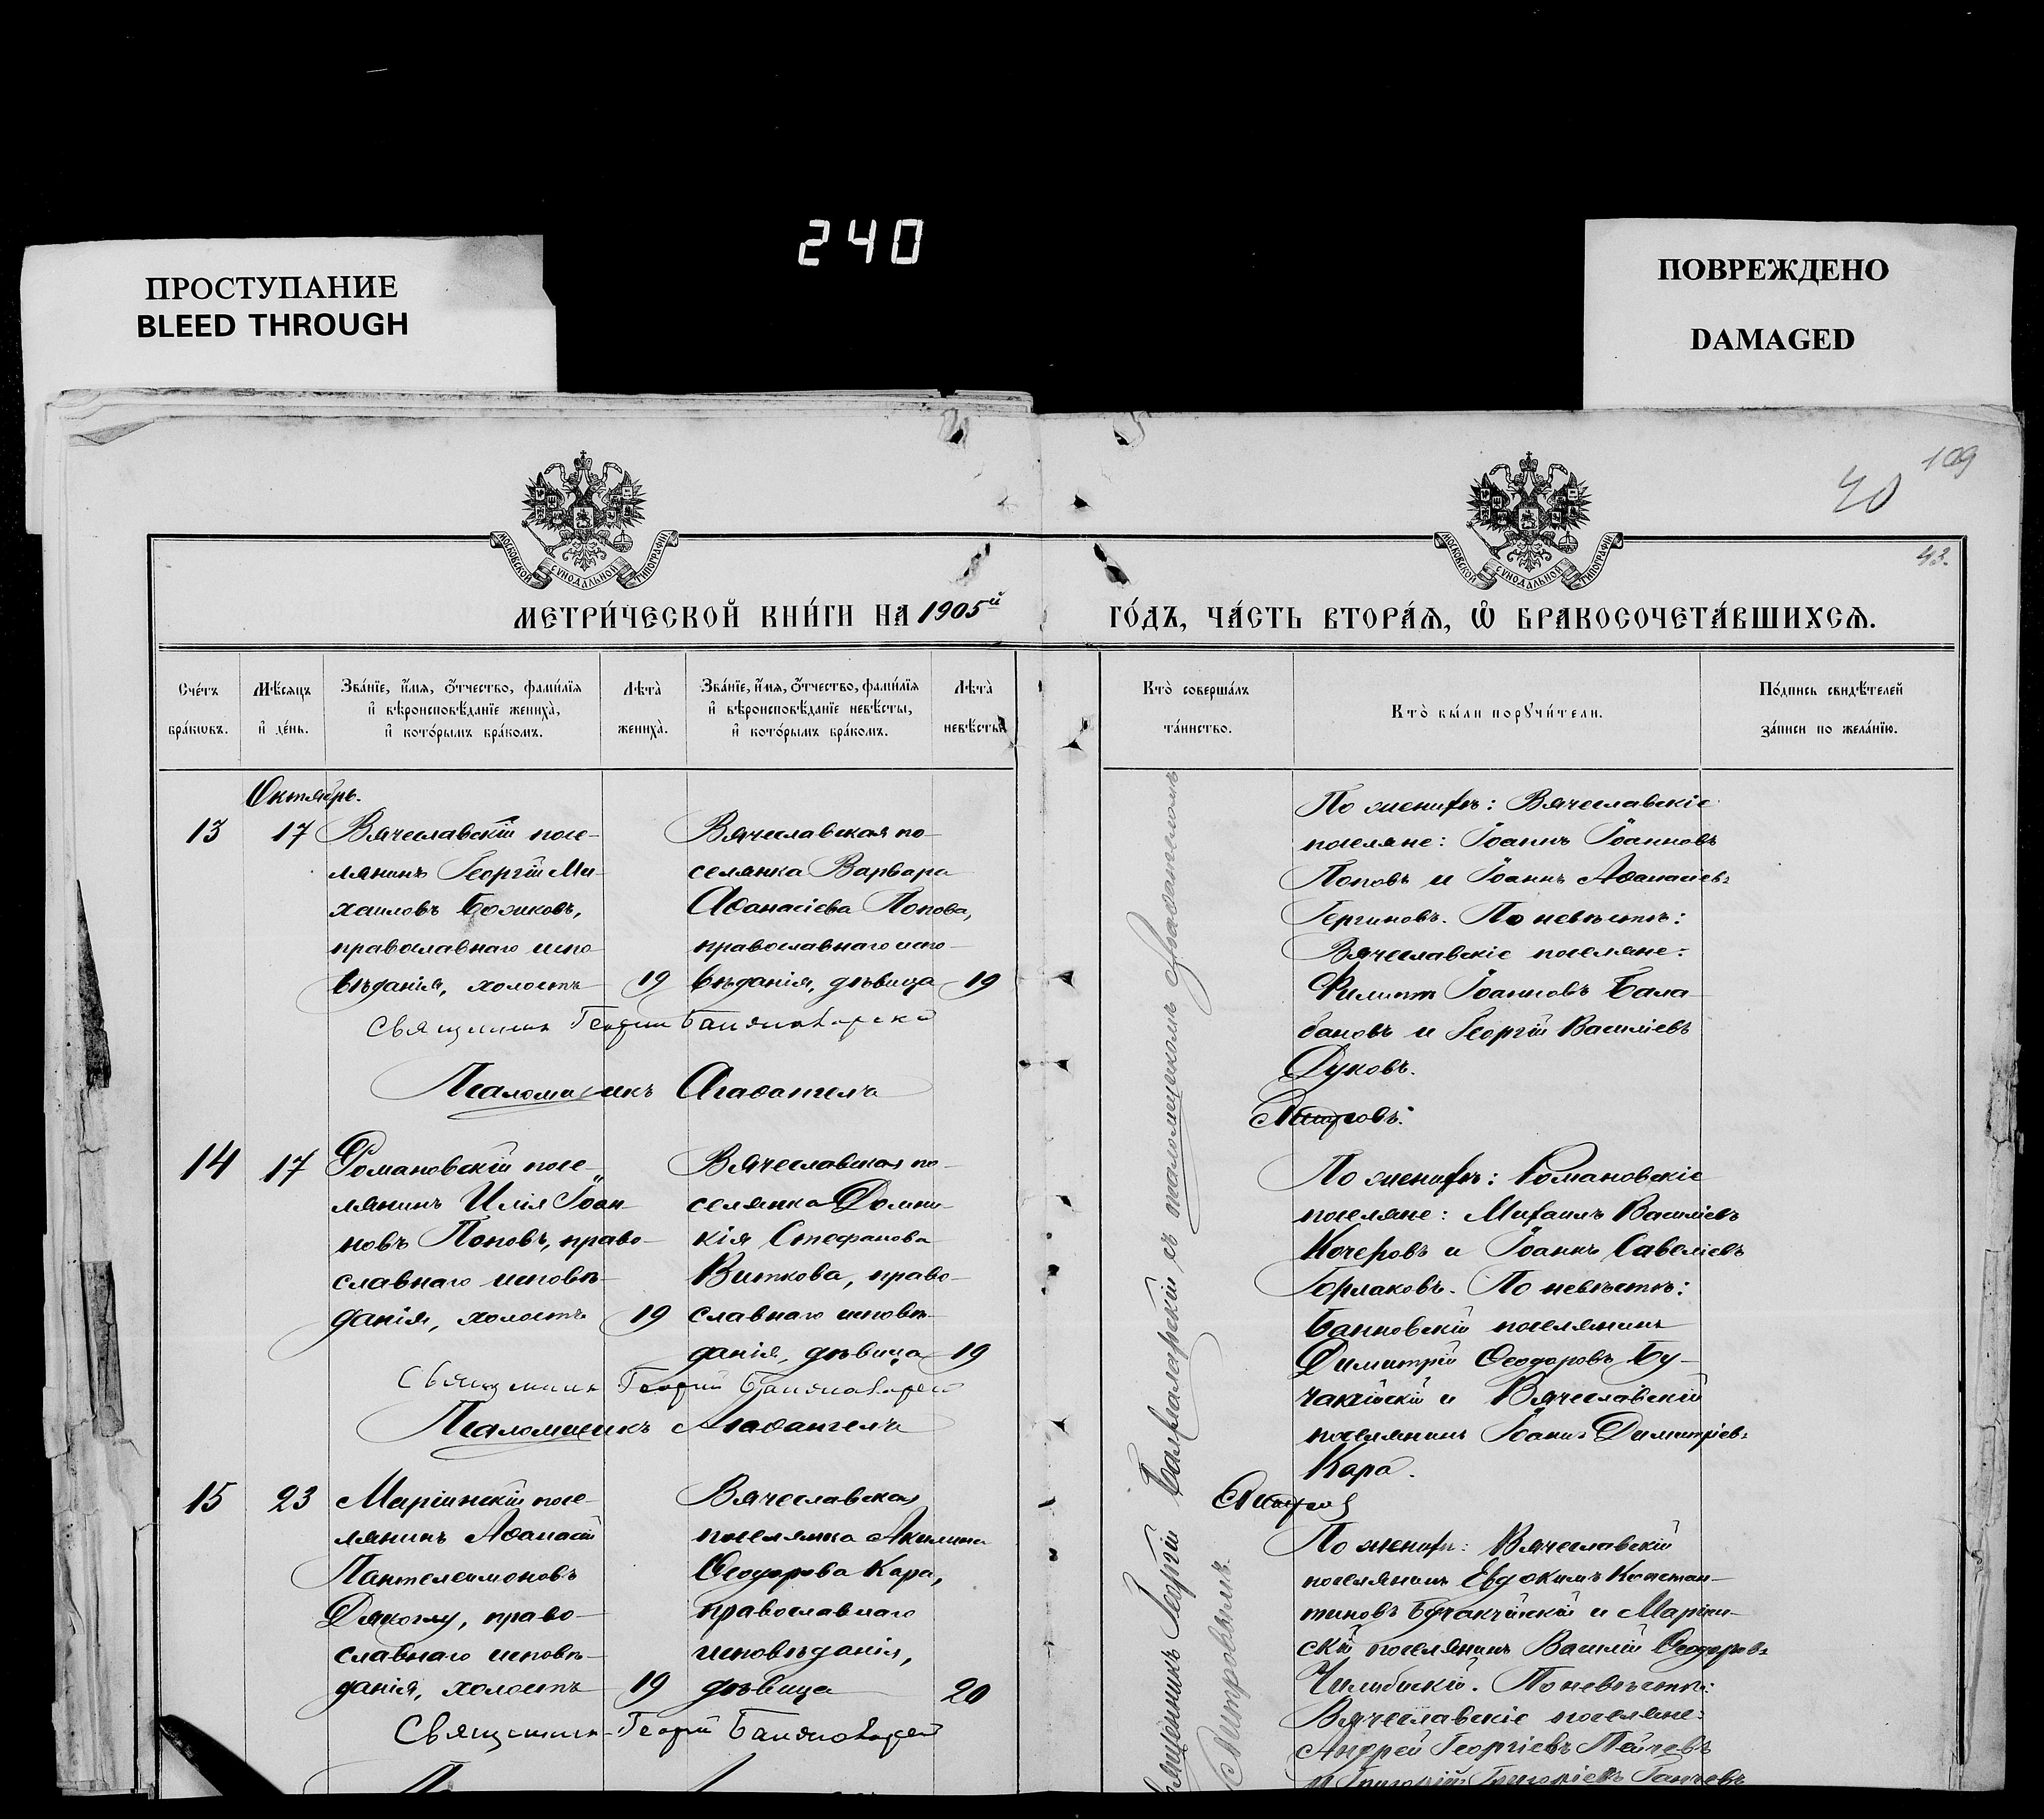 240
ПРОСТУПАНИЕ
BLEED THROUGH
ПОВРЕЖДЕНО
DAMAGED
109
40
43.
МОСКОВСКОЙ СѴНОДАЛЬНОЙ ТИПОГРАФІИ
МОСКОВСКОЙ СѴНОДАЛЬНОЙ ТИПОГРАФІИ
МЕТРИ́ЧЕСКОЙ КНИ́ГИ НА 1905й
ГО́ДЪ, ЧА́СТЬ ВТОРА́Ѧ, Ѡ҆ БРАКОСОЧЕТА́ВШИХСѦ.
Сче́тъ бра́кѡвъ.
Мѣ́сяцъ и҆ де́нь.
Зва́нїе, и҆́мя, ѻ҆́тчество, фамн́лїя
и҆ вѣроисповѣ́данїе жениха̀,
и҆ кото́рымъ бра́комъ.
Лѣта̀ жениха̀.
Зва́нїе, и҆́мя, ѻ҆́тчество, фами́лїя
и҆ вѣроисповѣ́данїе невѣ́сты,
и҆ кото́рымъ бра́комъ.
Лѣта̀ невѣ́сты.
Кто̀ соверша́лъ та́инство.
Кто̀ бы́ли порꙋчи́тели.
По́дпись свидѣ́телей за́писи по жела́нїю.
Октябрь.
13
17
Вячеславскій посе-
лянинъ Георгій Ми-
хаиловъ Божковъ,
православнаго испо-
вѣданія, холостъ
19
Вячеславская по-
селянка Варвара
Аѳанасіева Попова,
православнаго испо-
вѣданія, дѣвица
19
Священникъ Георгій
Псаломщикъ Агаѳангелъ
По женихѣ: Вячеславскіе
поселяне: Іоаннъ Іоанновъ
Поповъ и Іоаннъ Аѳанасіевъ
Гергиновъ. По невѣстѣ:
Вячеславскіе поселяне:
Филиппъ Іоанновъ Бала-
бановъ и Георгій Василіевъ
Дуковъ.
14
17
Романовскій посе-
лянинъ Илія Іоан-
новъ Поповъ, право-
славнаго исповѣ-
данія, холостъ
19
Вячеславская по-
селянка Домни-
кія Стефанова
Виткова, право-
славнаго исповѣ-
данія, дѣвица
19
Священникъ Георгій
Псаломщикъ Агаѳангелъ
По женихѣ: Романовскіе
поселяне: Михаилъ Василіевъ
Кочеровъ и Іоаннъ Савеліевъ
Горлаковъ. По невѣстѣ:
Банновскій поселянинъ
Димитрій Ѳеодоровъ Бу-
чакчійскій и Вячеславскій
поселянинъ Іоаннъ Димитріевъ
Кара.
15
23
Маріинскій посе-
лянинъ Аѳанасій
Пантелеимоновъ
Дякоглу, право-
славнаго исповѣ-
данія, холостъ
19
Вячеславская
поселянка Акилина
Ѳеодорова Кара,
православнаго
исповѣданія,
дѣвица
20
Священникъ Георгій
По женихѣ: Вячеславскій
поселянинъ Евдокимъ Констан-
тиновъ Бучакчійскій и Маріин-
скій поселянинъ Василій Ѳеодоровъ
Чилибискій. По невѣстѣ:
Вячеславскіе поселяне:
Андрей Георгіевъ Пейчевъ
и Григорій Григоріевъ Ганчевъ
Священникъ Георгій съ псаломщикомъ Агаѳангеломъ
Митровымъ.